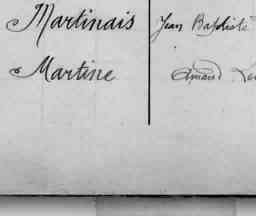 Martinais Jean Baptiste
Martine Amand